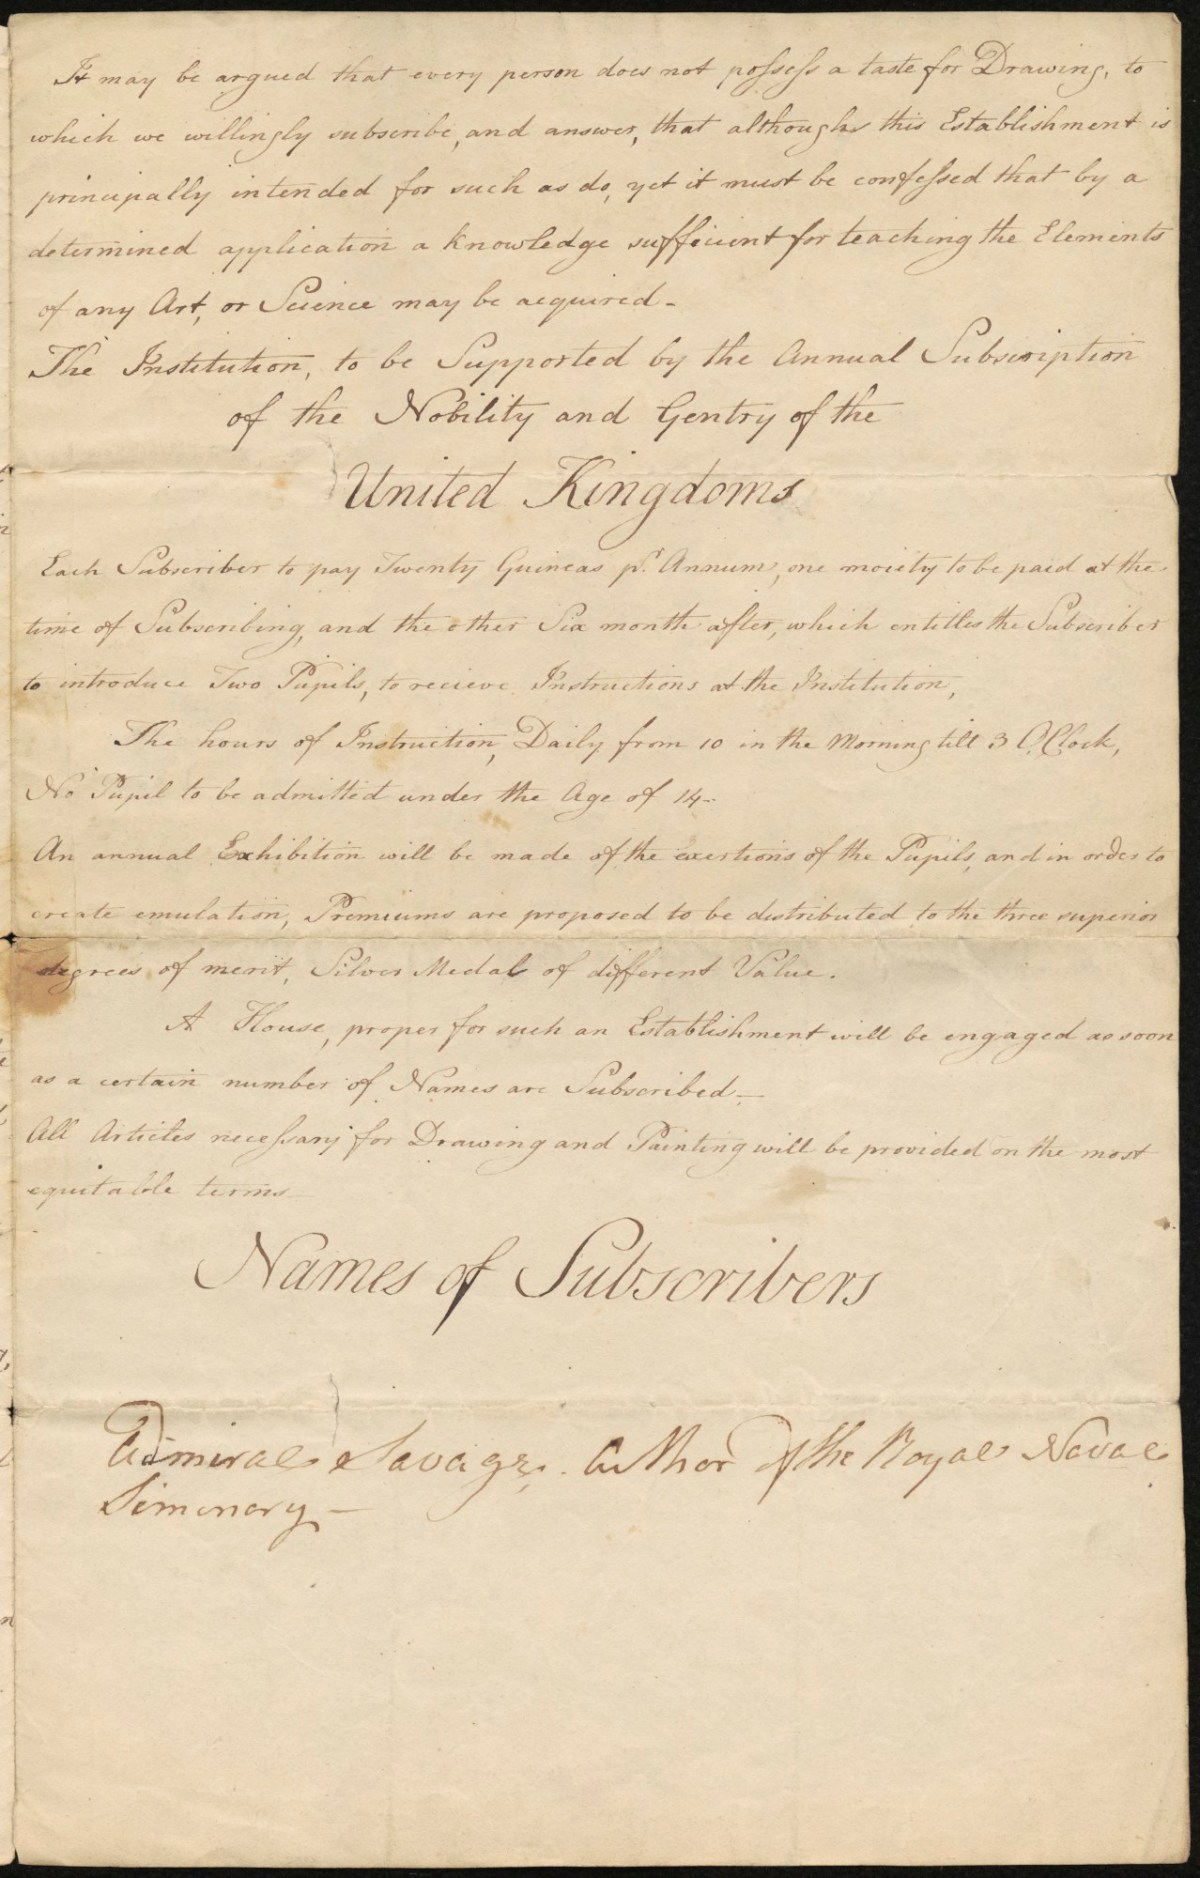 It may be argued that every person does not possess a taste for Drawing, to
which we willingly subscribe, and answer, that although this Establishment is
principally intended for such as do, yet it must be confessed that by a
determined application a knowledge sufficient for teaching the Elements
of any Art, or Science may be acquired -
The Institution, to be Supported by the Annual Subscription
of the Nobility and Gentry of the
United Kingdoms
Each Subscriber to pay Twenty Guineas pr. Annum, one moiety to be paid at the
time of Subscribing, and the other Six month after, which entitles the Subscriber
to introduce Two Pupils, to recieve Instructions at the Institution,
The hours of Instruction, Daily from 10 in the Morning till 3 O,Clock,
No Pupil to be admitted under the Age of 14-
An annual Exhibition will be made of the exertions of the Pupils, and in order to
create emulation, Premiums are proposed to be distributed to the three superior
degrees of merit, Silver Medal of different Value.
A House, proper for such an Establishment will be engaged as soon
as a certain number of Names are Subscribed -
All Articles necessary for Drawing and Painting will be provided on the most
equitable terms
Names of Subscribers
Admiral Savage, Author of the Royal Naval
Siminary -